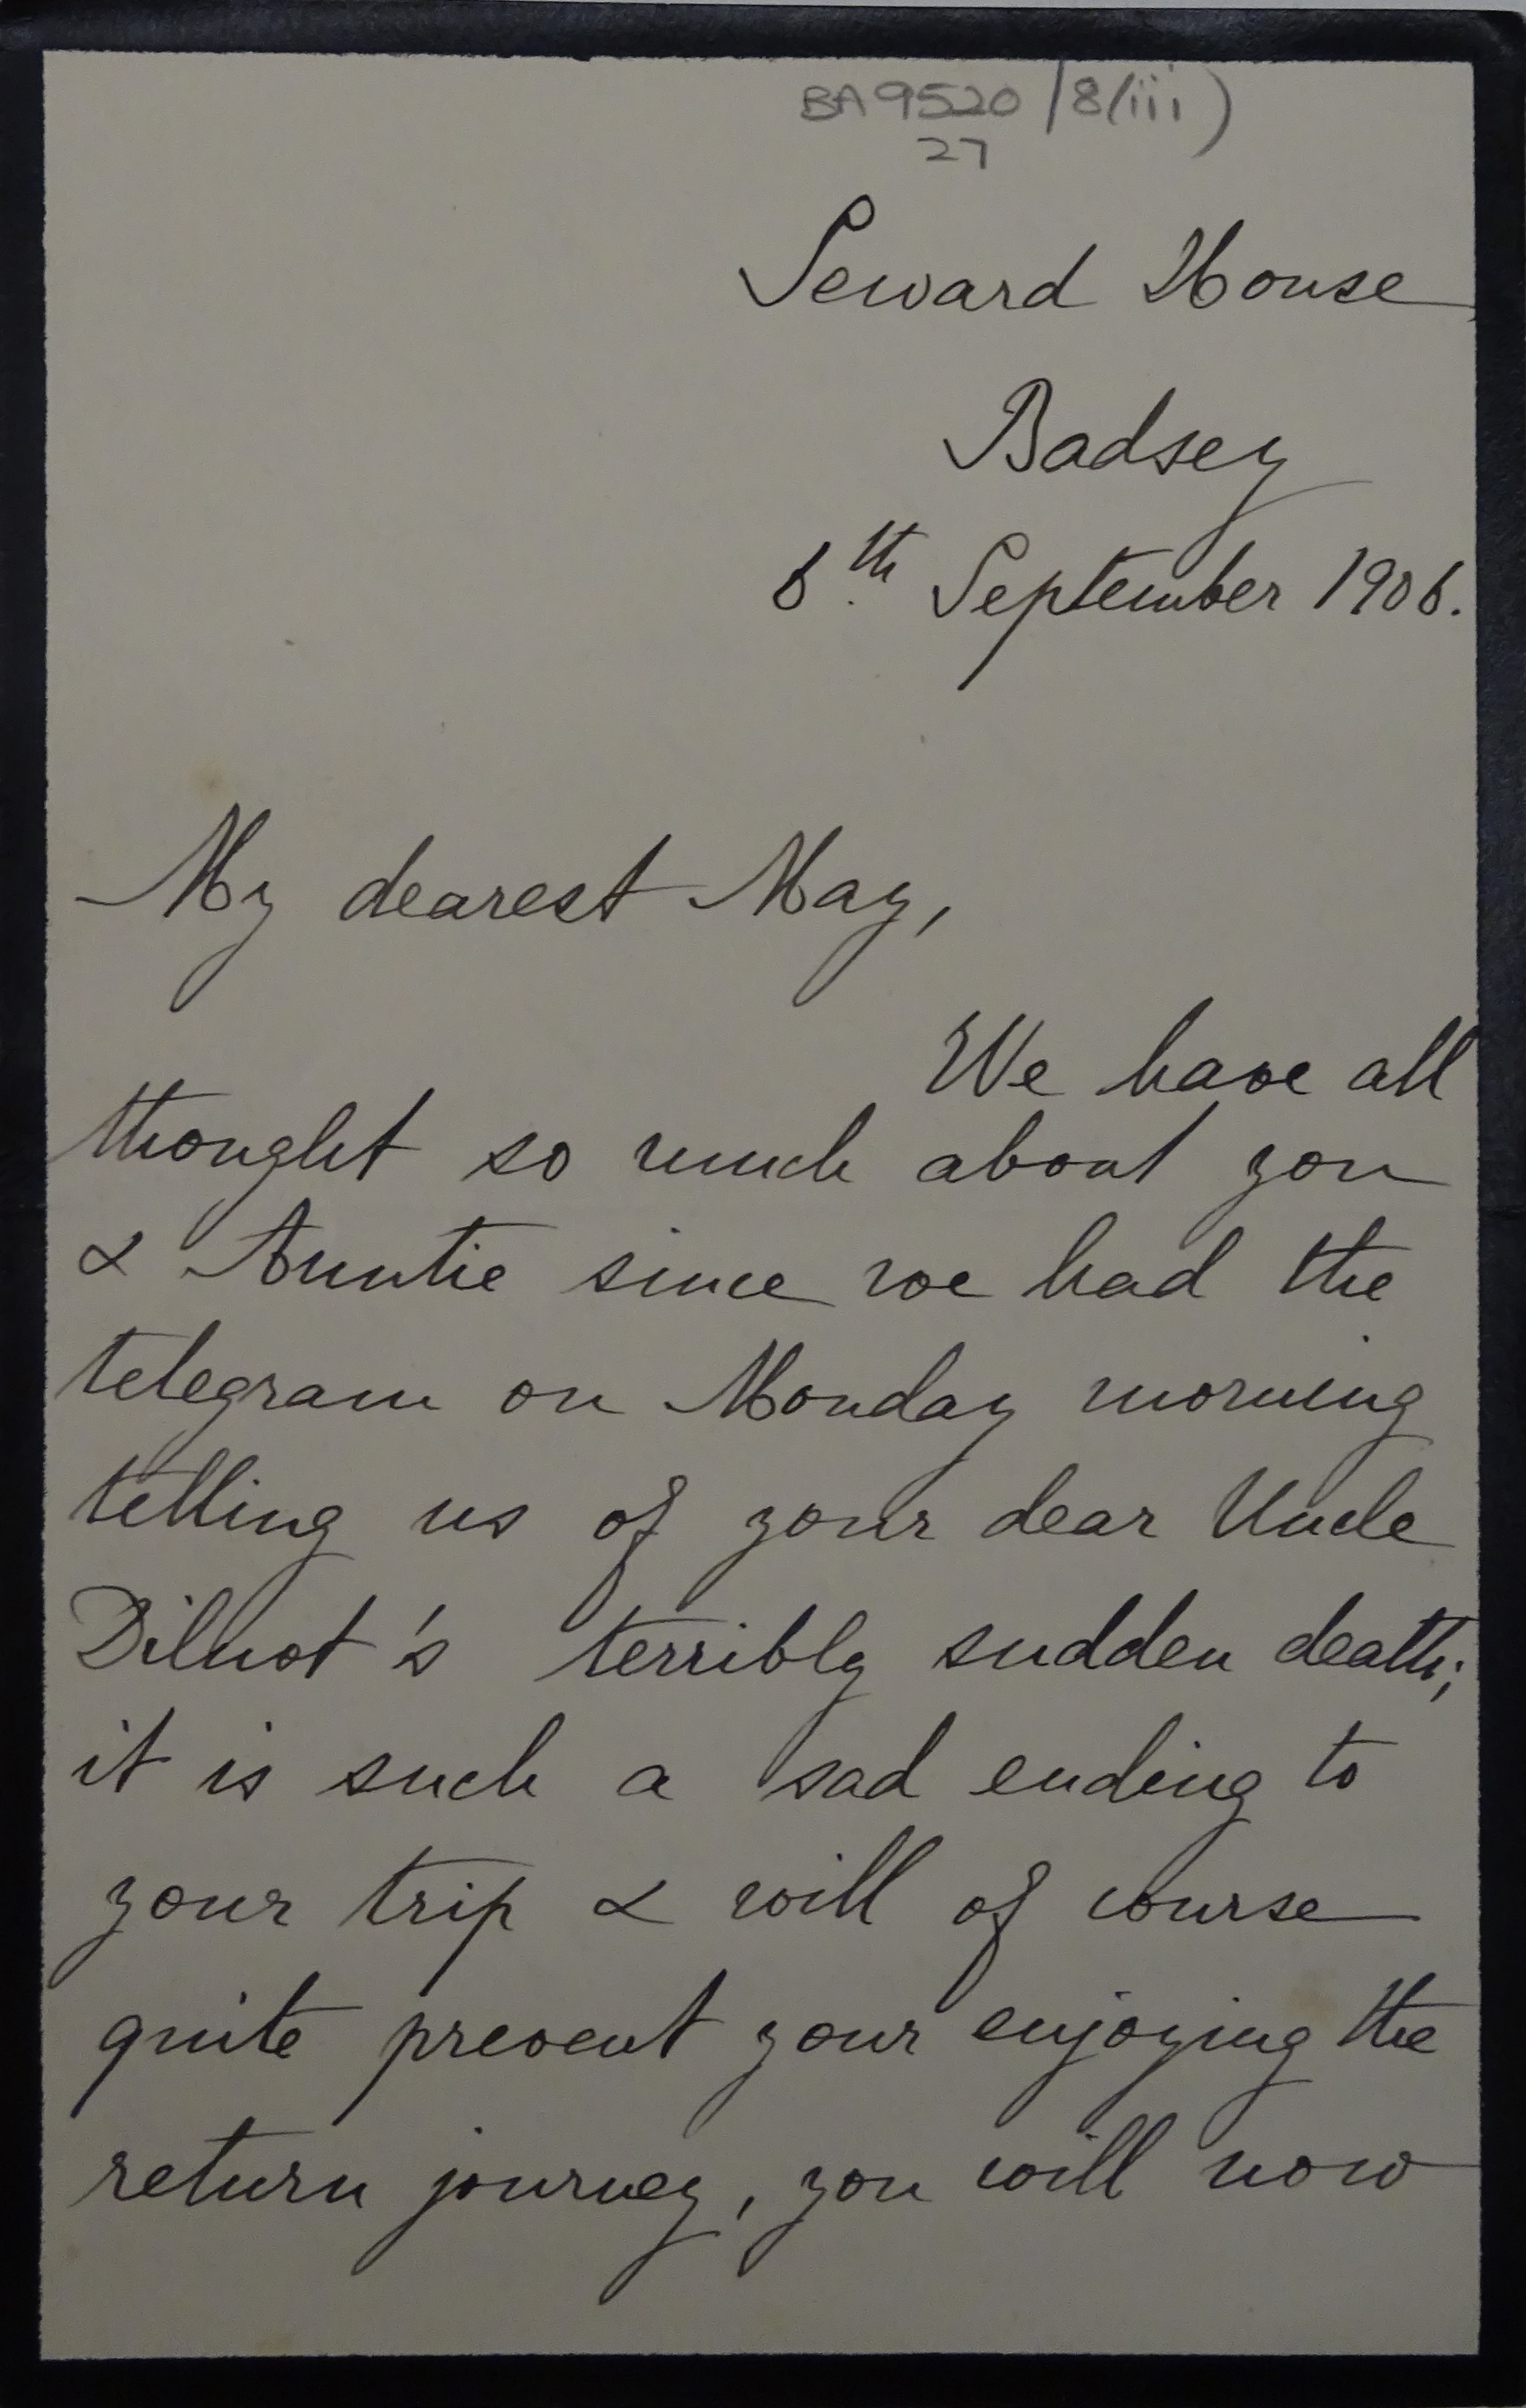 BA9520/8(iii)
27
Seward House
Badsey
6th September 1906.
My dearest May,
We have all
thought so much about you
& Auntie since we had the
telegram on Monday morning
telling us of your dear Uncle
Dilnot's terribly sudden death;
it is such a sad ending to
your trip & will of course
quite prevent your enjoying the
return journey, you will now